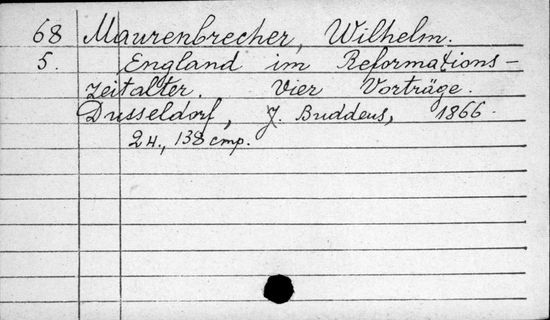 68 Maurenbrecher, Wilhelm.
5. England im Reformations-
zeitalter. Vier Vorträge.
Dusseldorf, J. Buddeus, 1866.
2 н., 138 стр.